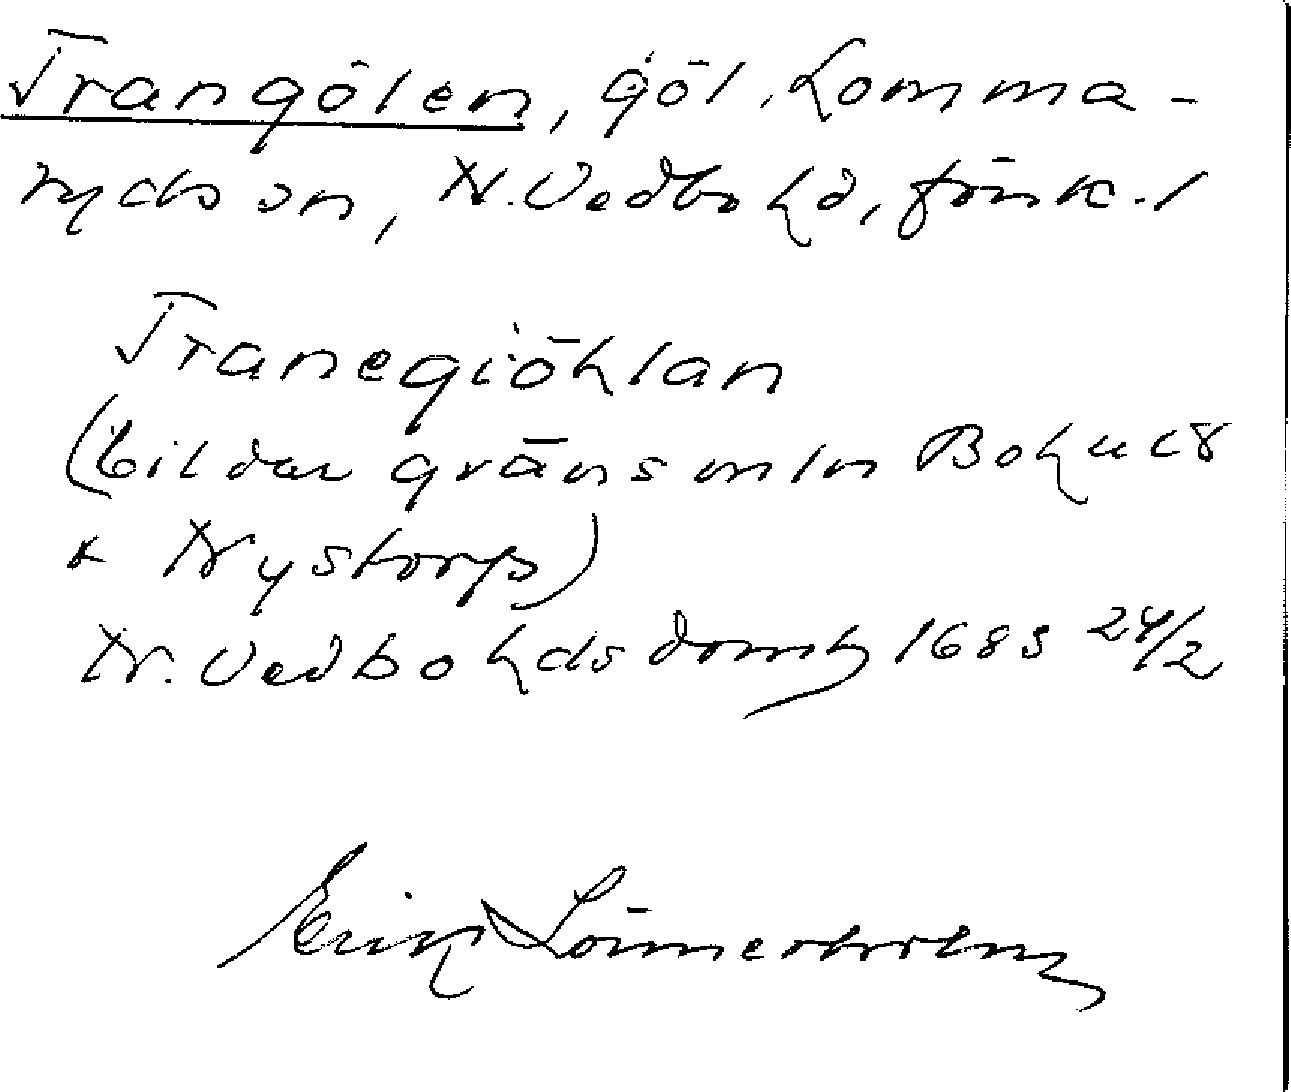 Trangölen, göl, Lomma-
ryds sn, N. Vedbo hd, Jönk. l
Tranegiöhlan
(bildar gräns mln Bohult
& Nystorp)
N. Vedbo hds domb 1683 24/2
Erik Lönnerholm